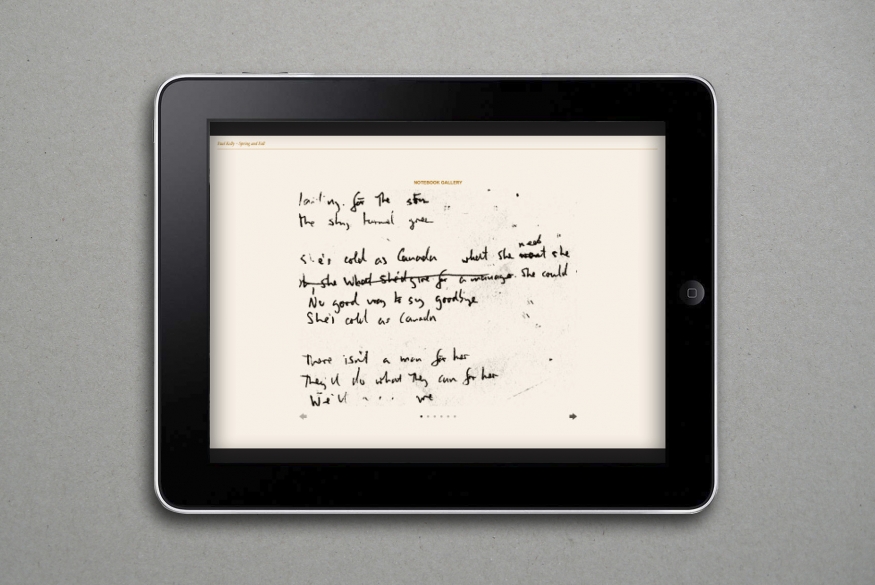 Paul Kelly - Spring and Fall
NOTEBOOK GALLERY
for the
the sky turned green
She's cold as Canada what she need want she
she what she'd give for a manager. She could
No good way to say goodbye
She's cold as Canada
There isn't a man for her
They'll do what they can for her
We'll . . . we